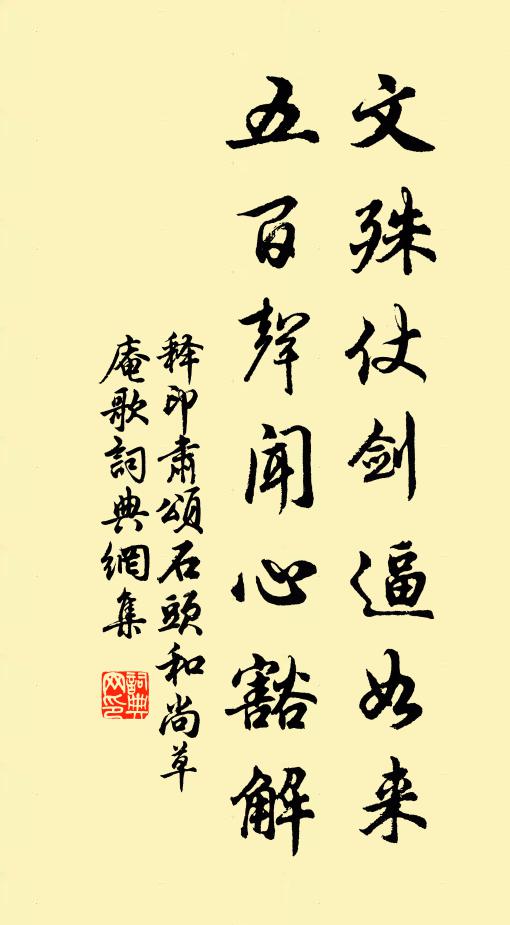 文殊仗剑逼如来
五百聲闻心豁解
释印肃頌石頭和尚草
庵歌詞典網集
詞典
网印